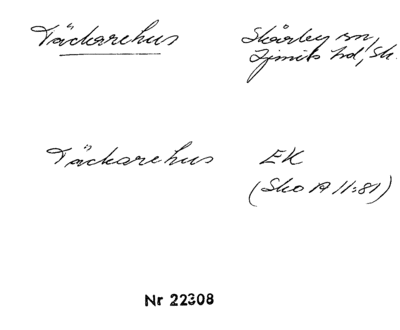 Täckarehus
Skårby sn,
Ljunits hd, Sk.
Täckarehus
EK
(Sko A 11:81)
Nr 22308